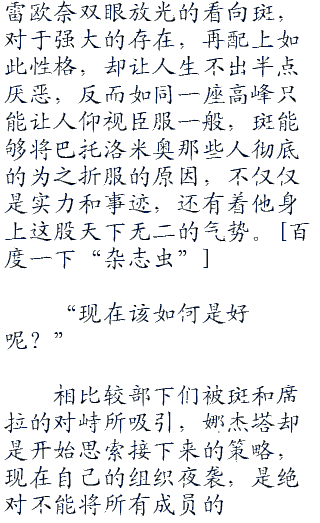 雷欧奈双眼放光的看向斑，
对于强大的存在，再配上如
此性格，却让人生不出半点
厌恶，反而如同一座高峰只
能让人仰视臣服一般，斑能
够将巴托洛米奥那些人彻底
的为之折服的原因，不仅仅
是实力和事迹，还有着他身
上这股天下无二的气势。[百
度一下“杂志虫”]
“现在该如何是好
呢？”
相比较部下们被斑和席
拉的对峙所吸引，娜杰塔却
是开始思索接下来的策略，
现在自己的组织夜袭，是绝
对不能将所有成员的